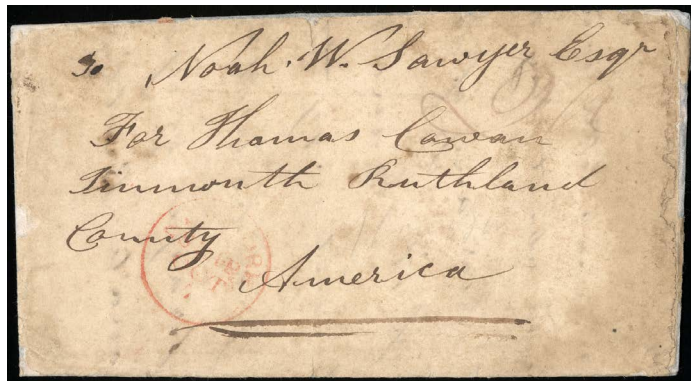 To Noah. W. Sawyer Esqr
For Thomas Cowan
Tinmouth Ruthland
County
America